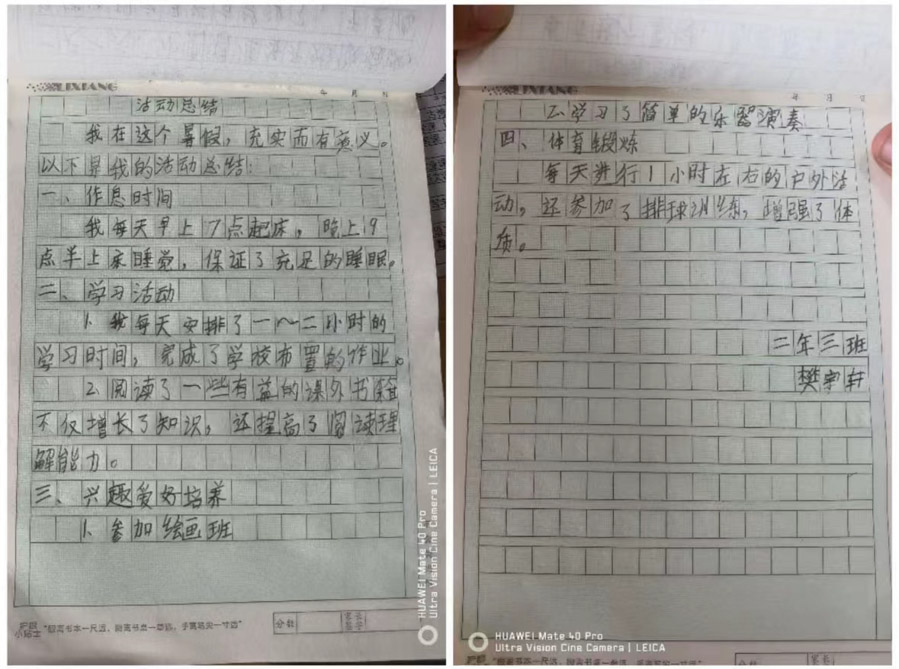 LIXIANG
年 月 日
活动总结
我在这个暑假,充实而有意义。
以下是我的活动总结:
一、作息时间
我每天早上7点起床,晚上9
点半上床睡觉,保证了充足的睡眠。
二、学习活动
1.我每天安排了一~二小时的
学习时间,完成了学校布置的作业。
2.阅读了一些有益的课外书籍
不仅增长了知识,还提高了阅读理
解能力。
三、兴趣爱好培养
1.参加绘画班
分数
家长
签字
HUAWEI Mate 40 Pro
Ultra Vision Cine Camera | LEICA
年 月 日
2.学习了简单的乐器演奏
四、体育锻炼
每天进行1小时左右的户外活
动,还参加了排球训练,增强了体
质。
二年三班
樊宇轩
HUAWEI Mate 40 Pro
Ultra Vision Cine Camera | LEICA